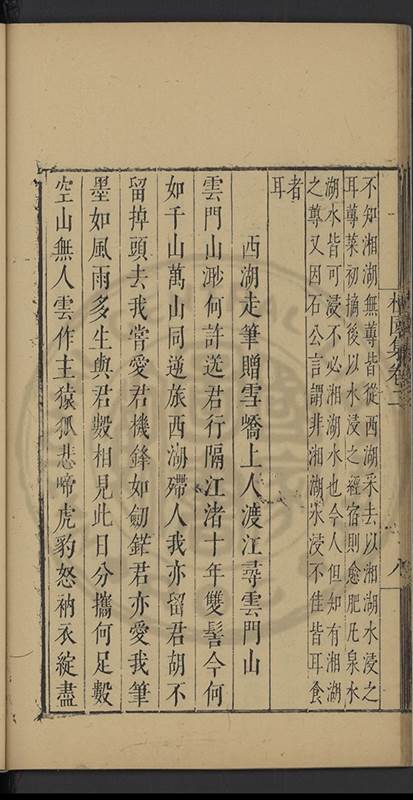 集卷二
八
不知湘湖無蓴皆從西湖采去以湘湖水浸之
耳蓴菜初摘後以水浸之經宿則愈肥凡泉水
湖水皆可浸不必湘湖水也今人但知有湘湖
之蓴又因石公言謂非湘湖水浸不佳皆耳食
者
耳
西湖走筆贈雪嶠上人渡江尋雲門山
雲門山渺何許送君行隔江渚十年雙髻今何
如千山萬山同逆旅西湖殢人我亦留君胡不
留掉頭去我嘗愛君機鋒如劒鋩君亦愛我筆
墨如風雨多生與君數相見此日分攜何足數
空山無人雲作主猿狐悲啼虎豹怒衲衣綻盡